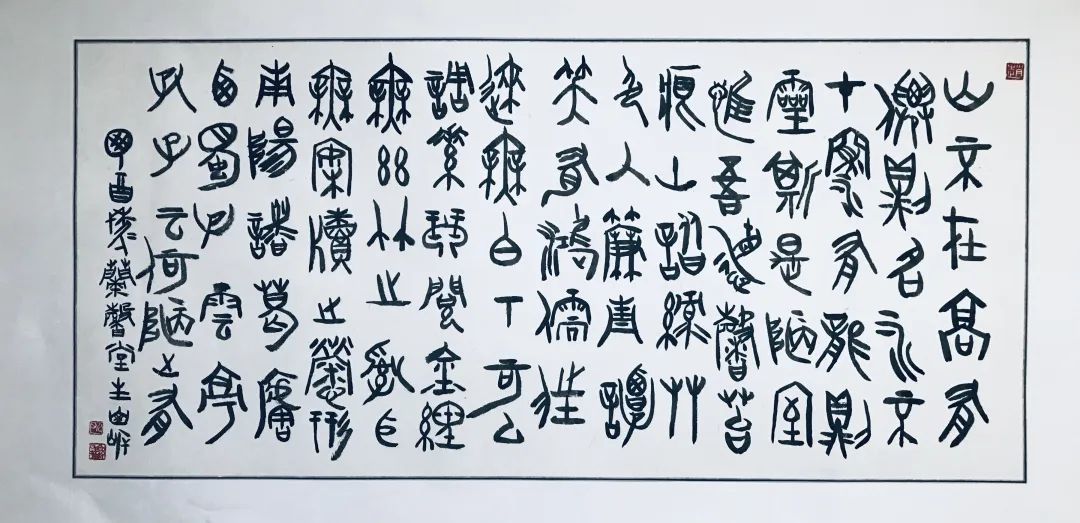 山不在高有
僊則名水不
在深有龍則
靈斯是陋室
惟吾德馨苔
痕上階綠草
色入簾青談
笑有鴻儒往
來無白丁可以
調素琴閱金經
無絲竹之亂耳
無案牘之勞形
南陽諸葛廬
西蜀子雲亭
孔子云何陋之有
酉秋蘭馨堂主